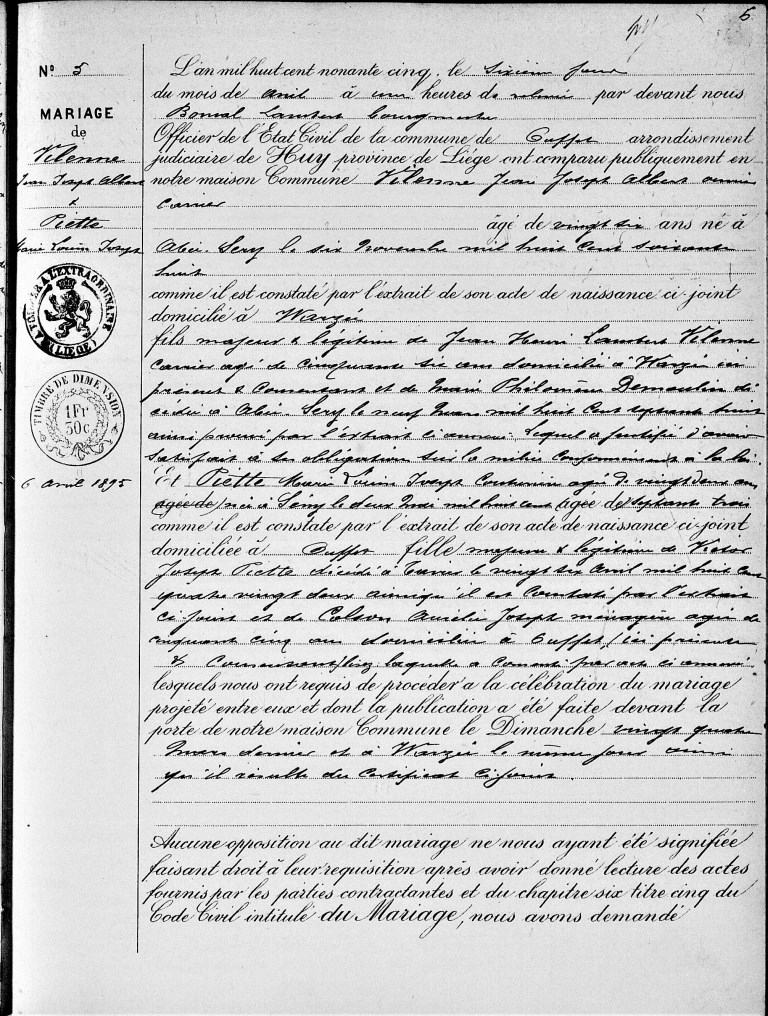 5
Nº 5
MARIAGE
de
Vilenne
Jean Joseph Albert
&
Piette
Marie Louise Joseph
TIMBRE A L'EXTRAORDINAIRE
(LIEGE)
TIMBRE DE DIMENSION
1Fr
30c
6 avril 1895
L'an mil huit cent nonante cinq, le sixième jour
du mois de avril à une heures de relevée par devant nous
Bonsal Lambert bourgmestre
Officier de l'Etat Civil de la commune de Ouffet arrondissement
judiciaire de Huy province de Liége ont comparu publiquement en
notre maison Commune Vilenne Jean Joseph Albert ouvrier
carrier
âgé de vingt six ans né à
Abée-Scry le six Novembre mil huit cent soixante
huit
comme il est constaté par l'extrait de son acte de naissance ci-joint
domicilié à Warzée
fils majeur & légitime de Jean Henri Lambert Vilenne
carrier agé de cinquante six ans domicilié à Warzée ici
présent & Consentant et de Marie Philomène Demoulin dé
cédée à Abée-Scry le neuf Mars mil huit cent septante huit
ainsi prouvé par l'extrait ci annexé. Lequel a justifié d'avoir
satisfait à ses obligations sur la milice conformément à la loi.
Et Piette Marie Louise Joseph Couturière agée de vingt deux ans
(agée de) née à Seny le deux Mai mil huit cent (agée de) septante trois
comme il est constaté par l'extrait de son acte de naissance ci-joint
domiciliée à Ouffet fille majeure & légitime de Victor
Joseph Piette décédé à Tavier le vingt six Avril mil huit cent
quatre vingt deux ainsi qu'il est Constaté par l'extrait
ci-joint et de Colson Aurélie Joseph ménagère agée de
cinquante cinq ans domiciliée à Ouffet (ici présente
& Consentant) laquelle a Consenti par acte ci annexé.
lesquels nous ont requis de procéder a la célébration du mariage
projeté entre eux et dont la publication a été faite devant la
porte de notre maison Commune le Dimanche vingt quatre
Mars dernier et à Warzée le même jour ainsi
qu'il résulte du Certificat ci-joint.
Aucune opposition au dit mariage ne nous ayant été signifiée
faisant droit à leur requisition après avoir donné lecture des actes
fournis par les parties contractantes et du chapitre six titre cinq du
Code Civil intitulé du Mariage, nous avons demandé